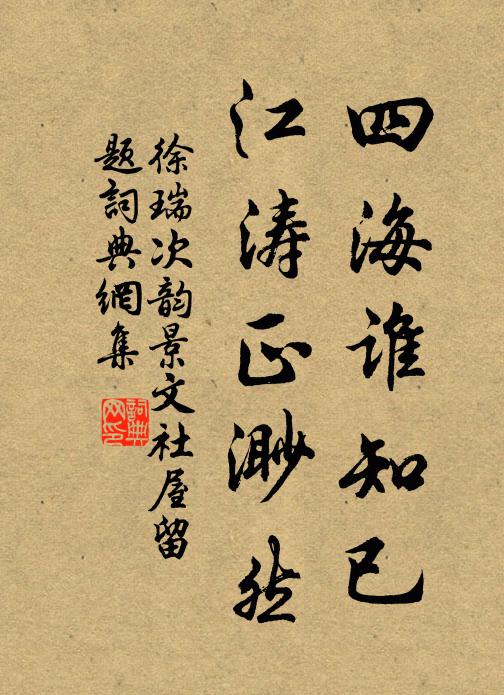 四海谁知已
江涛正渺然
徐瑞次韵景文社屋留
题词典網集
詞典网印